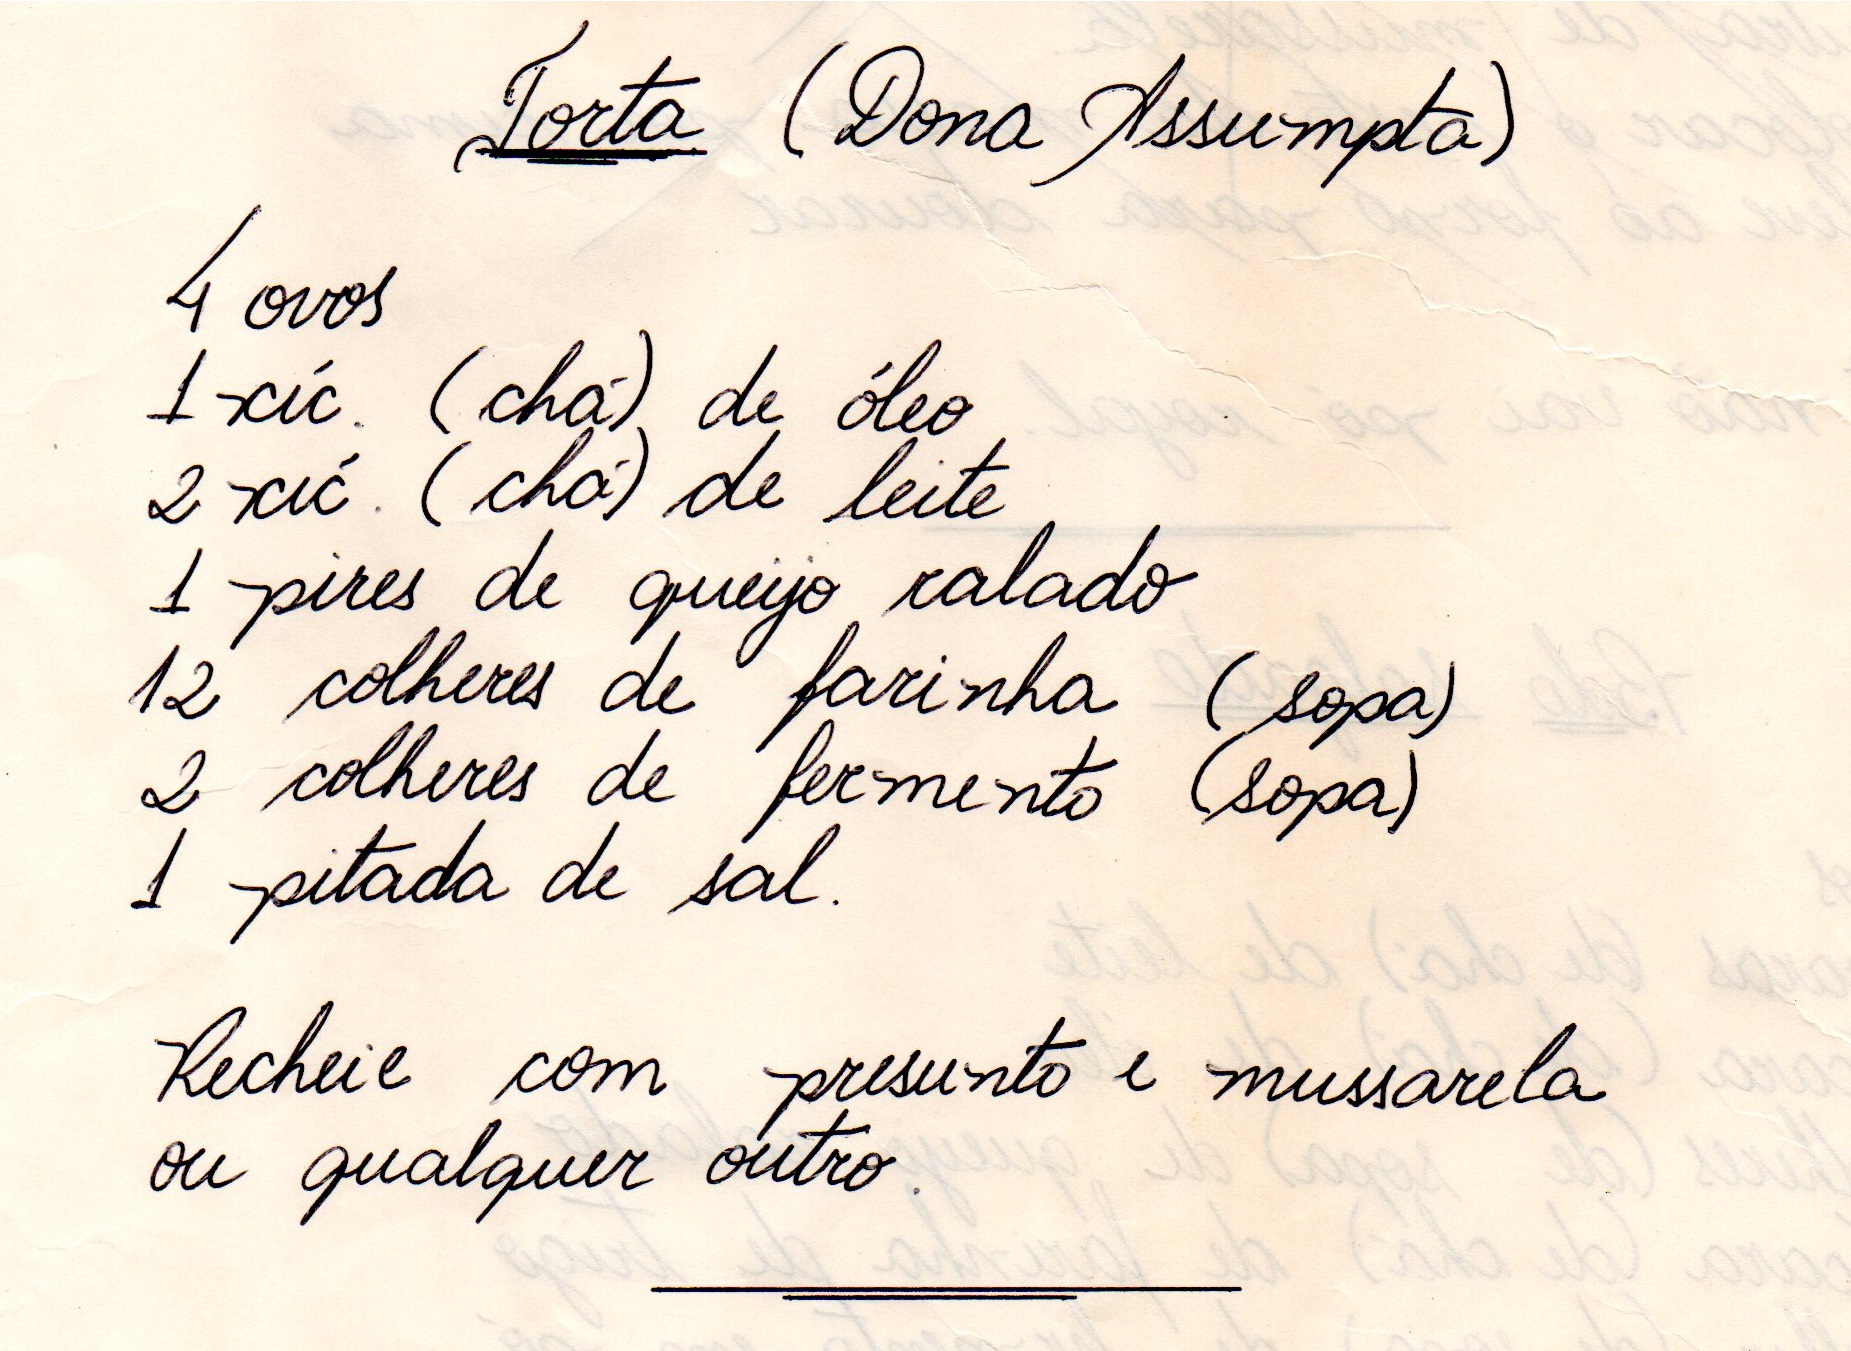 Torta (Dona Assumpta)
4 ovos
1 xíc. (chá) de óleo
2 xíc. (chá) de leite
1 pires de queijo ralado
12 colheres de farinha (sopa)
2 colheres de fermento (sopa)
1 pitada de sal.
Recheie com presunto e mussarela
ou qualquer outro.